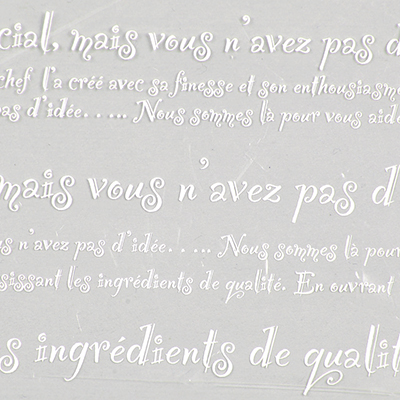 cial, mais vous n'avez pas d
chef l'a créé avec sa finesse et son enthousiasme
pas d'idée..... Nous sommes là pour vous aide
mais vous n'avez pas d'
us n'avez pas d'idée..... Nous sommes là pour
sissant les ingrédients de qualité. En ouvrant
s ingrédients de qualit